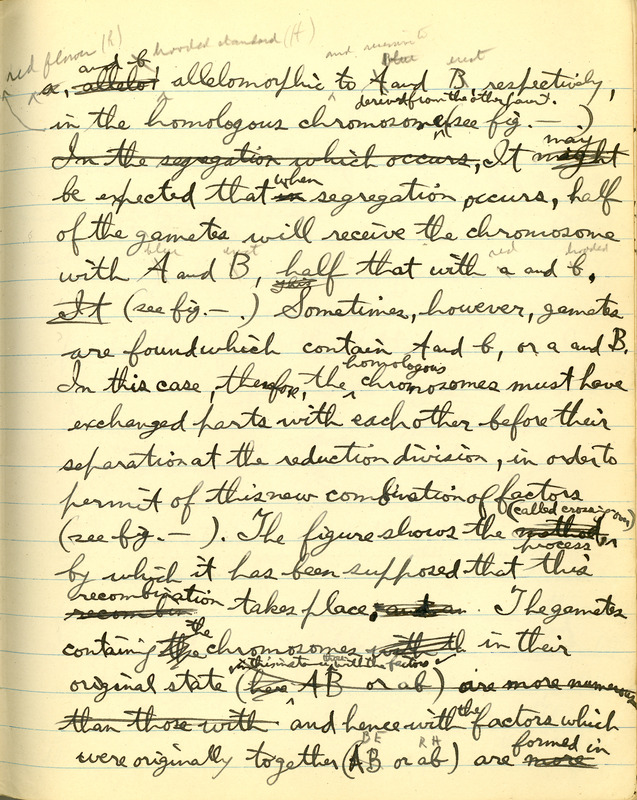 red flower (R) hooded standard (H) and recessive to blue erect
and b
a, allelo allelomorphic to A and B, respectively,
derived from the other parent.
in the homologous chromosome (see fig. — .)
In the segregation which occurs, It might may
be expected that in when segregation occurs, half
of the gametes will receive the chromosome
blue erect red hooded
with A and B, half that with a and b,
It (see fig. — .) Sometimes, however, gametes
are found which contain A and b, or a and B.
homologous
In this case, therefore, the chromosomes must have
exchanged parts with each other before their
separation at the reduction division, in order to
permit of this new combination of factors
(called crossing over)
(see fig. — ). The figure shows the method
process
by which it has been supposed that this
recombination
recombin takes place. The gametes
the
containing the chromosomes with th in their
original state (here AB or ab) are more numerous
than those with and hence with the factors which
BE RH formed in
were originally together (AB or ab) are more